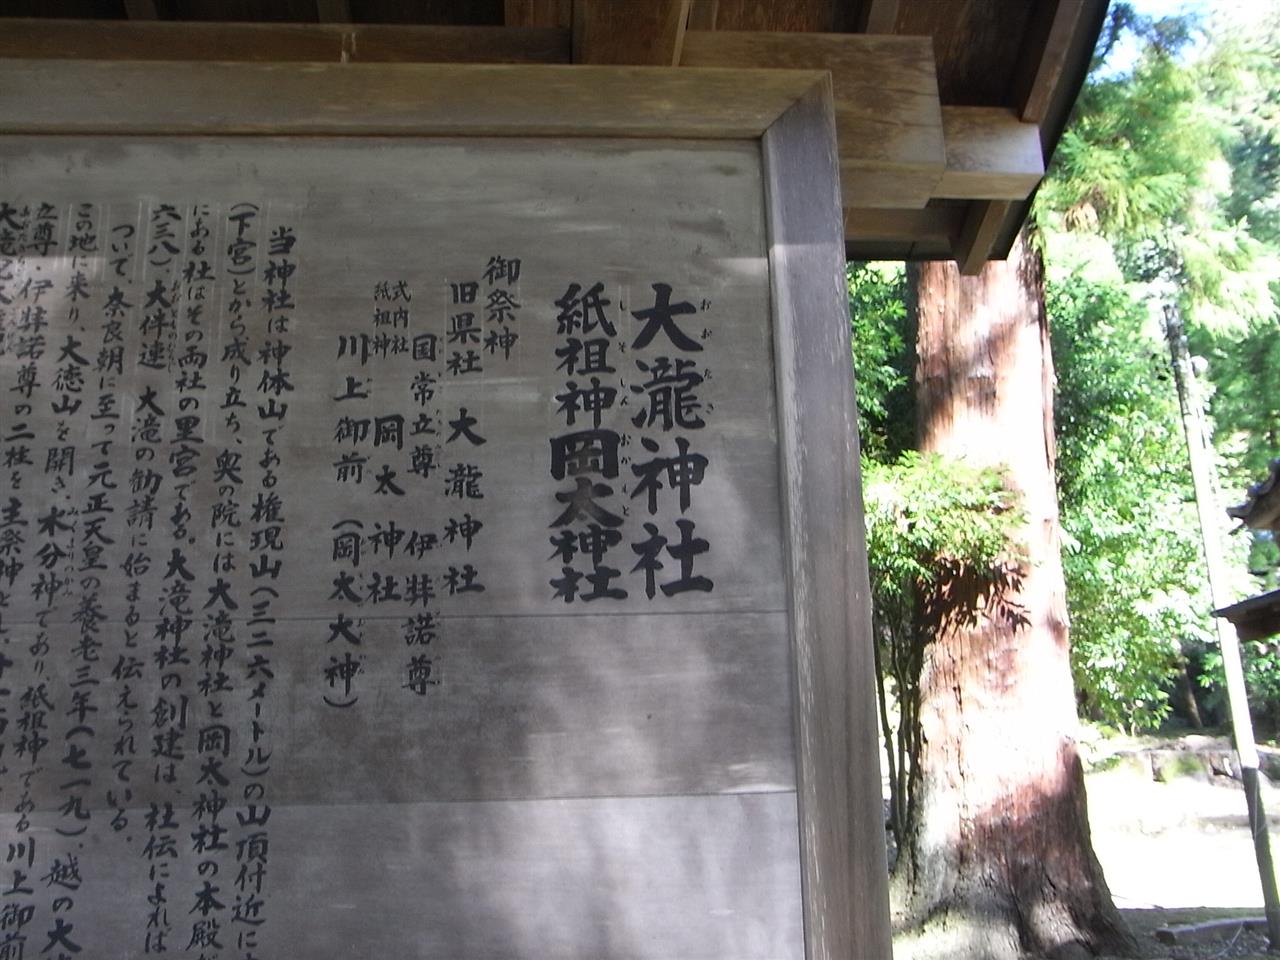 大瀧神社
紙祖神岡太神社
御祭神
旧県社 大瀧神社
国常立尊 伊弉諾尊
式内社
紙祖神
岡太神社
川上御前(岡太大神)
当神社は神体山である権現山(三二六メートル)の山頂付近に
(下宮)とから成り立ち、奥の院には大滝神社と岡太神社の本殿が
にある社はその両社の里宮である。大滝神社の創建は、社伝によれば
六三八)、大伴連 大滝の勧請に始まると伝えられている。
ついで、奈良朝に至って元正天皇の養老三年(七一九)、越の大
この地に来り、大徳山を開き、水分神であり、紙祖神である川上御前
立尊・伊弉諾尊の二柱を主祭神と